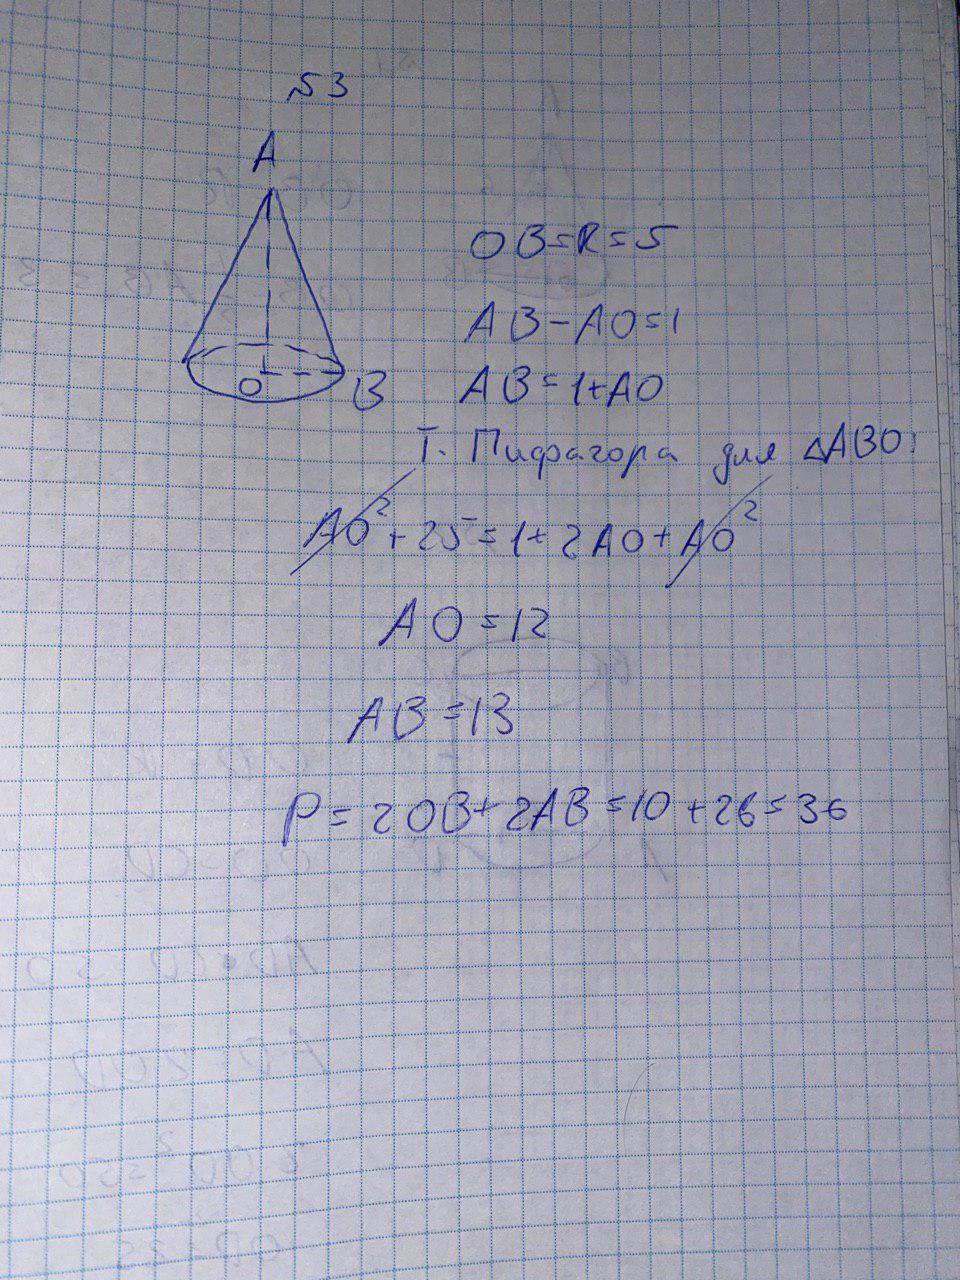 №3
A
O
B
OB=R=5
AB-AO=1
AB=1+AO
Т. Пифагора для △ABO:
AO²+25=1+2AO+AO²
AO=12
AB=13
P=2OB+2AB=10+26=36